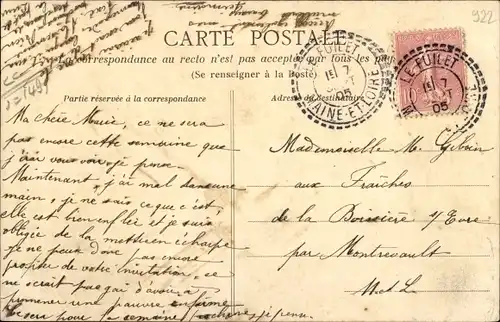 922
CARTE POSTALE
La correspondance au recto n'est pas acceptée par tous les pays
(Se renseigner à la Poste)
Partie réservée à la correspondance
Adresse du destinataire
LE FUILET
7
05
MAINE-ET-LOIRE
LE FUILET
7
05
10
Ma chère Marie, ce ne sera
pas encore cette semaine que
j'irai vous voir je pense.
Maintenant j'ai mal dans une
main, je ne sais ce que c'est,
elle est bien enflée et je suis
obligée de la mettre en écharpe
je ne peux donc pas encore
profiter de votre invitation, ce
ne serait pas gai d'avoir à
promener une pauvre infirme
ce sera pour la semaine prochaine, je pense.
Mademoiselle M.
aux Fraîches
de la Boissière s/ Evre
par Montrevault
M-et-L